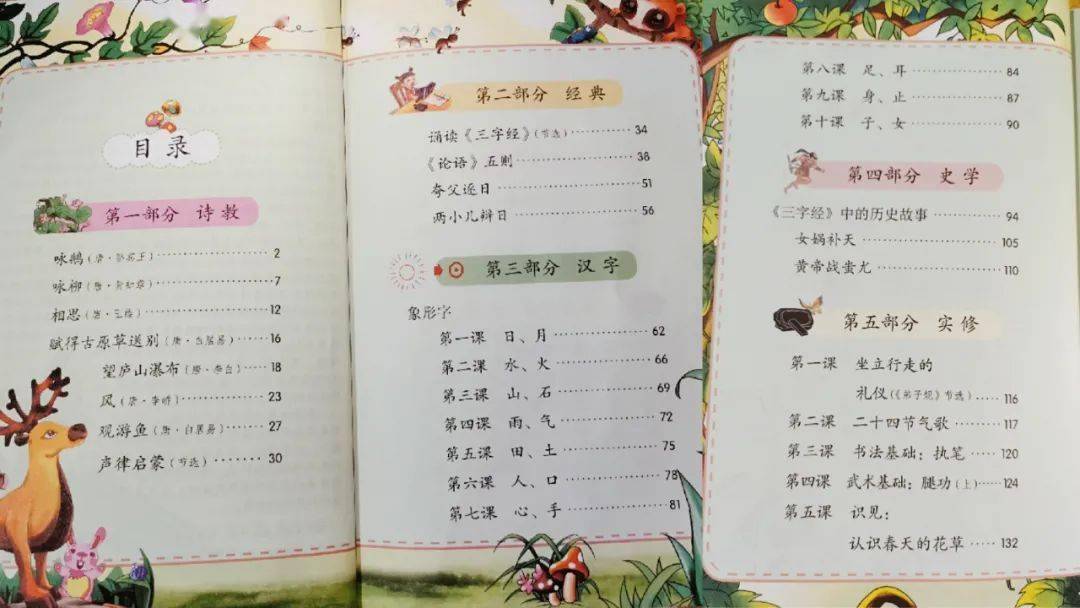 目录
第一部分 诗教
咏鹅(唐·骆宾王)……2
咏柳(唐·贺知章)……7
相思(唐·王维)……12
赋得古原草送别(唐·白居易)……16
望庐山瀑布(唐·李白)……18
风(唐·李峤)……23
观游鱼(唐·白居易)……27
声律启蒙(节选)……30
第二部分 经典
诵读《三字经》(节选)……34
《论语》五则……38
夸父逐日……51
两小儿辩日……56
第三部分 汉字
象形字
第一课 日、月……62
第二课 水、火……66
第三课 山、石……69
第四课 雨、气……72
第五课 田、土……75
第六课 人、口……78
第七课 心、手……81
第八课 足、耳……84
第九课 身、止……87
第十课 子、女……90
第四部分 史学
《三字经》中的历史故事……94
女娲补天……105
黄帝战蚩尤……110
第五部分 实修
第一课 坐立行走的
礼仪(《弟子规》节选)……116
第二课 二十四节气歌……117
第三课 书法基础:执笔……120
第四课 武术基础:腿功(上)……124
第五课 识见:
认识春天的花草……132